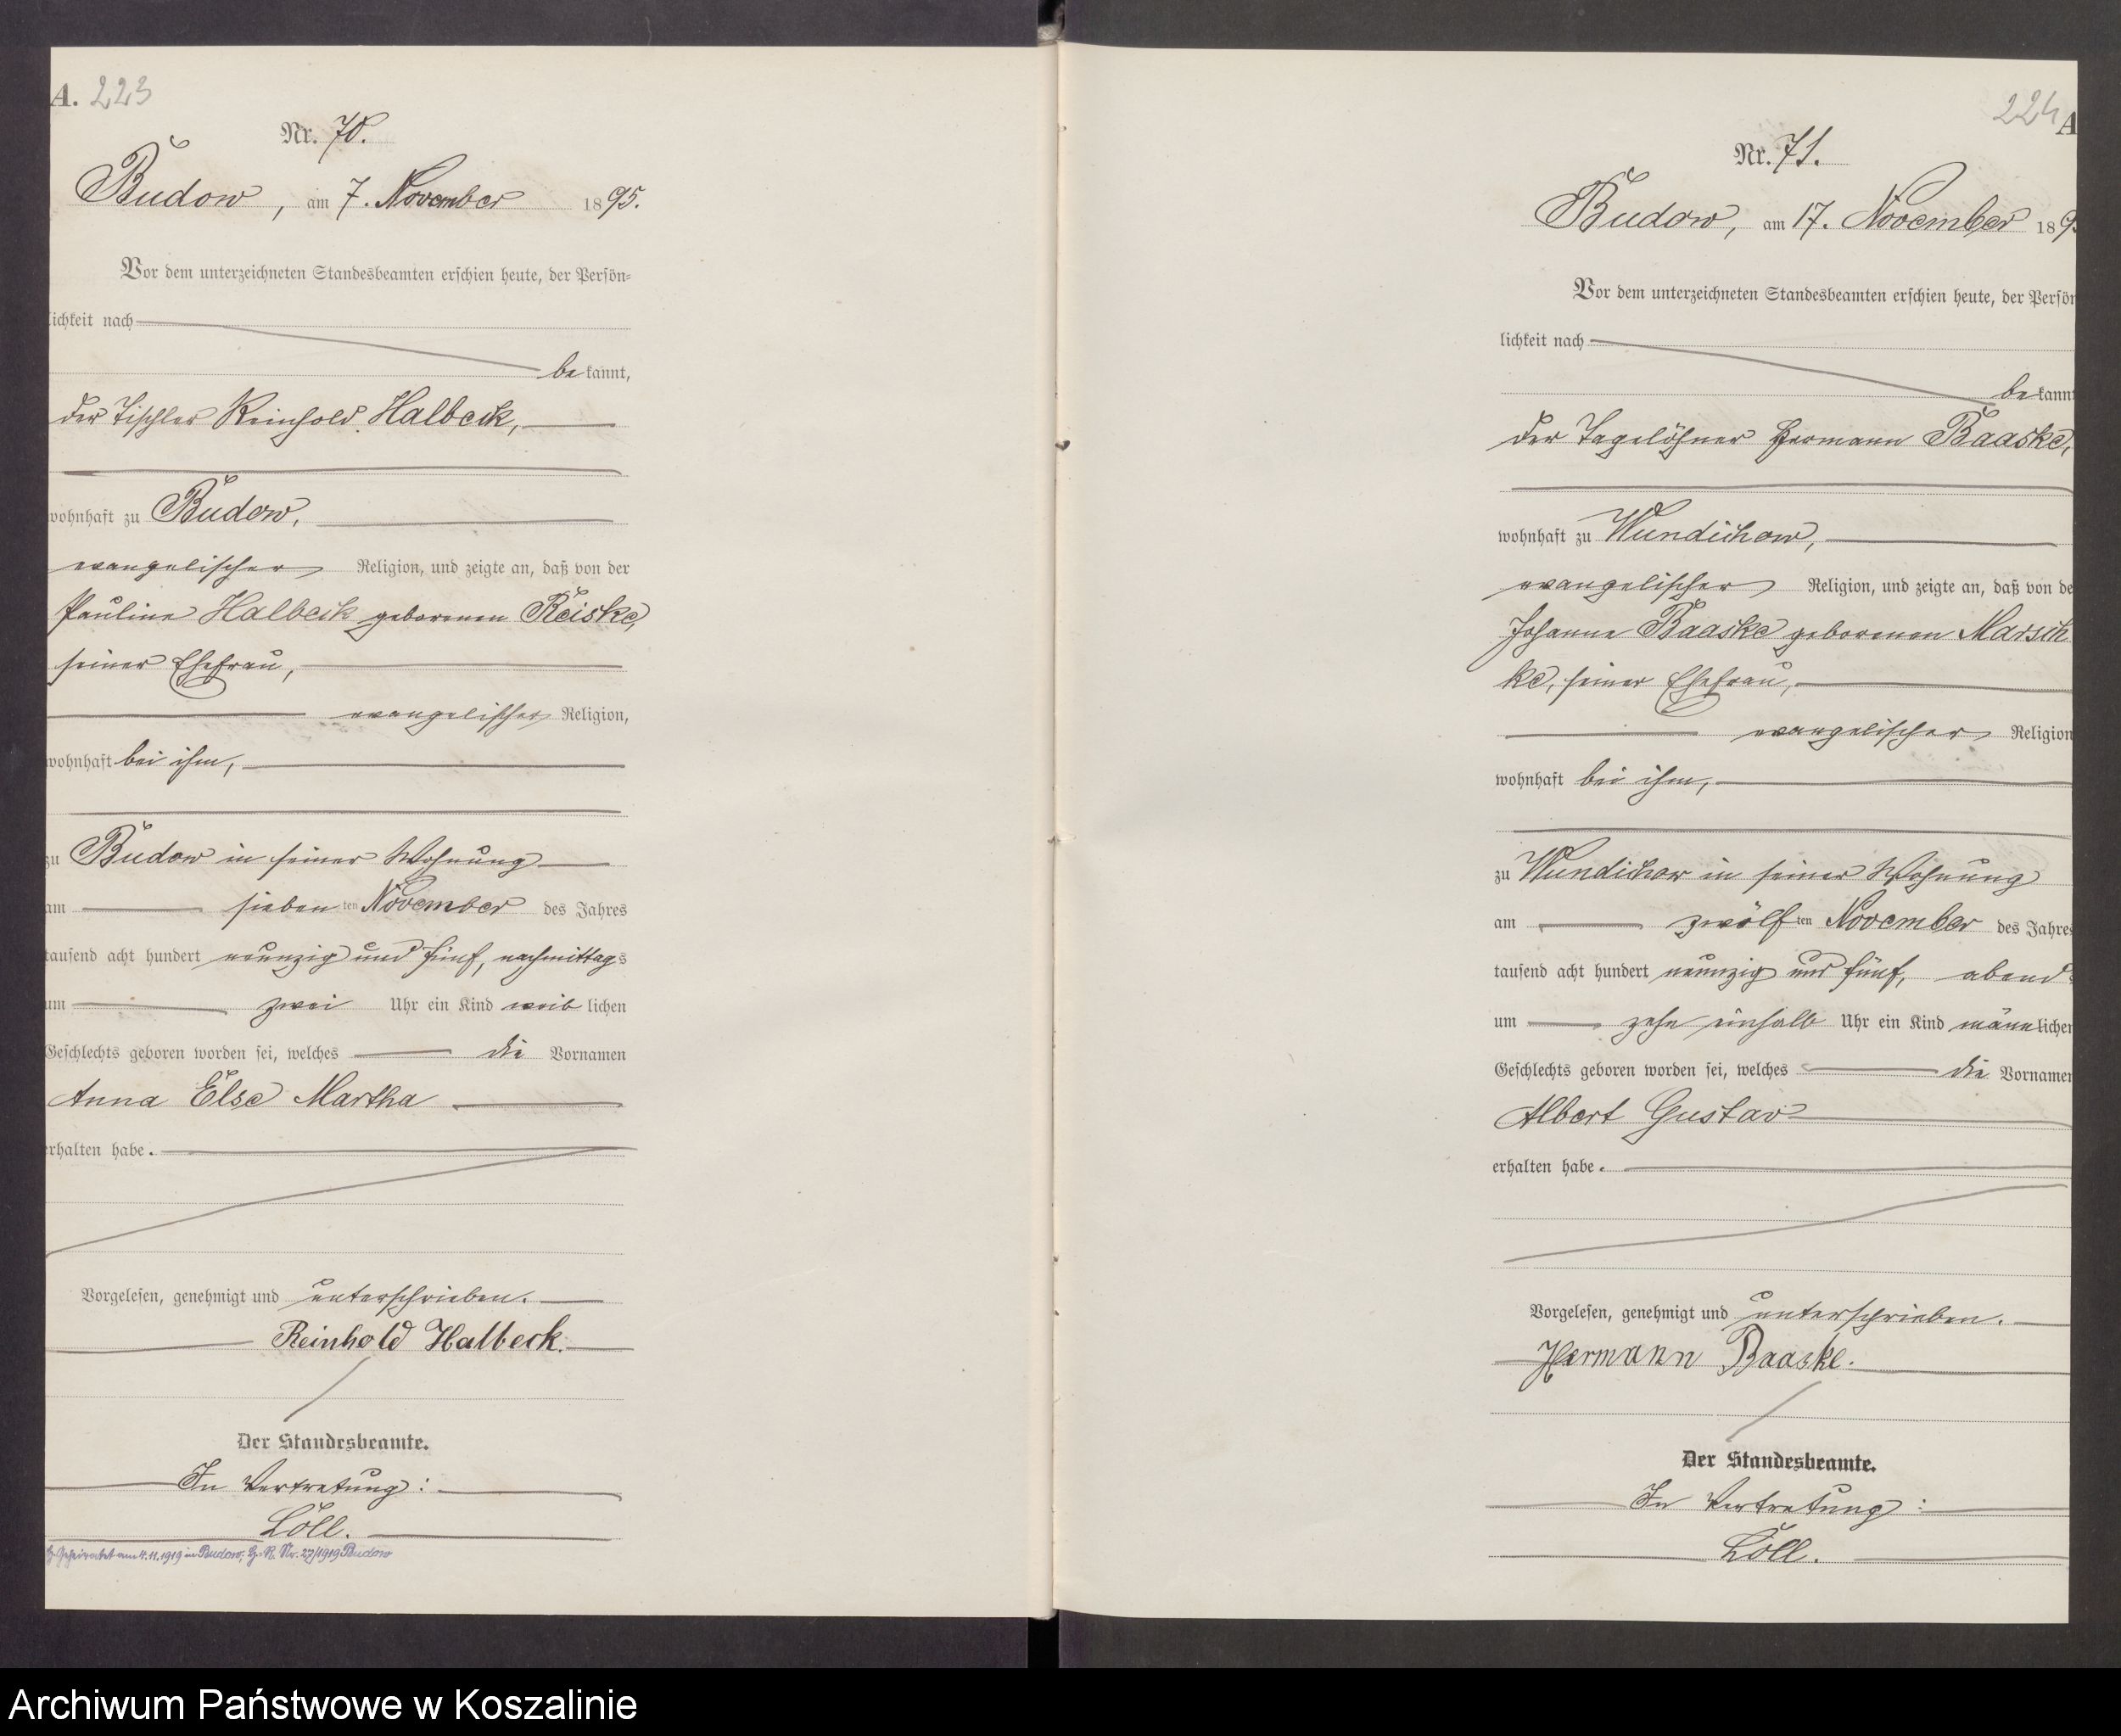 A. 223
Nr. 70.
Budow, am 7. November 1895.
Vor dem unterzeichneten Standesbeamten erschien heute, der Persön-
lichkeit nach
be kannt,
der Tischler Reinhold Halbeck,
wohnhaft zu Budow,
evangelischer Religion, und zeigte an, daß von der
Pauline Halbeck geborenen Reiske,
seiner Ehefrau,
evangelischer Religion,
wohnhaft bei ihm,
zu Budow in seiner Wohnung
am sieben ten November des Jahres
tausend acht hundert neunzig und fünf, nachmittags
um zwei Uhr ein Kind weib lichen
Geschlechts geboren worden sei, welches die Vornamen
Anna Else Martha
erhalten habe.
Vorgelesen, genehmigt und unterschrieben.
Reinhold Halbeck.
Der Standesbeamte.
In Vertretung:
Löll.
Geheiratet am 4.11.1919 in Budow, H.-R. Nr. 27/1919 Budow
224 A
Nr. 71.
Budow, am 17. November 189
Vor dem unterzeichneten Standesbeamten erschien heute, der Persön
lichkeit nach
be kannt
der Tagelöhner Hermann Baaske,
wohnhaft zu Wundichow,
evangelischer Religion, und zeigte an, daß von de
Johanne Baaske geborenen Marsch
ke, seiner Ehefrau,
evangelischer Religion
wohnhaft bei ihm,
zu Wundichow in seiner Wohnung
am zwölf ten November des Jahres
tausend acht hundert neunzig und fünf, abend
um zehn einhalb Uhr ein Kind männ lichen
Geschlechts geboren worden sei, welches die Vornamen
Albert Gustav
erhalten habe.
Vorgelesen, genehmigt und unterschrieben.
Hermann Baaske.
Der Standesbeamte.
In Vertretung:
Löll.
Archiwum Państwowe w Koszalinie